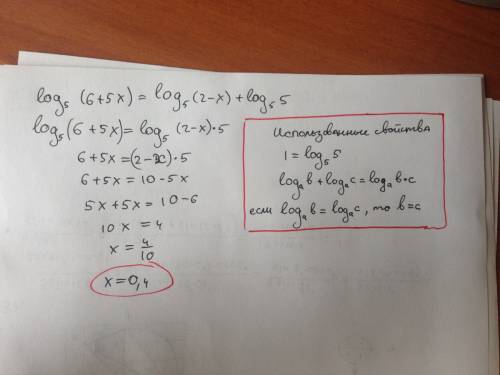 log₅ (6+5x) = log₅ (2-x) + log₅ 5
log₅(6+5x) = log₅ (2-x)·5
6+5x = (2-x)·5
6+5x = 10-5x
5x+5x = 10-6
10x = 4
x = 4/10
x = 0,4
Использованные свойства
1 = log₅ 5
logₐb + logₐc = logₐb·c
если logₐb = logₐc, то b=c